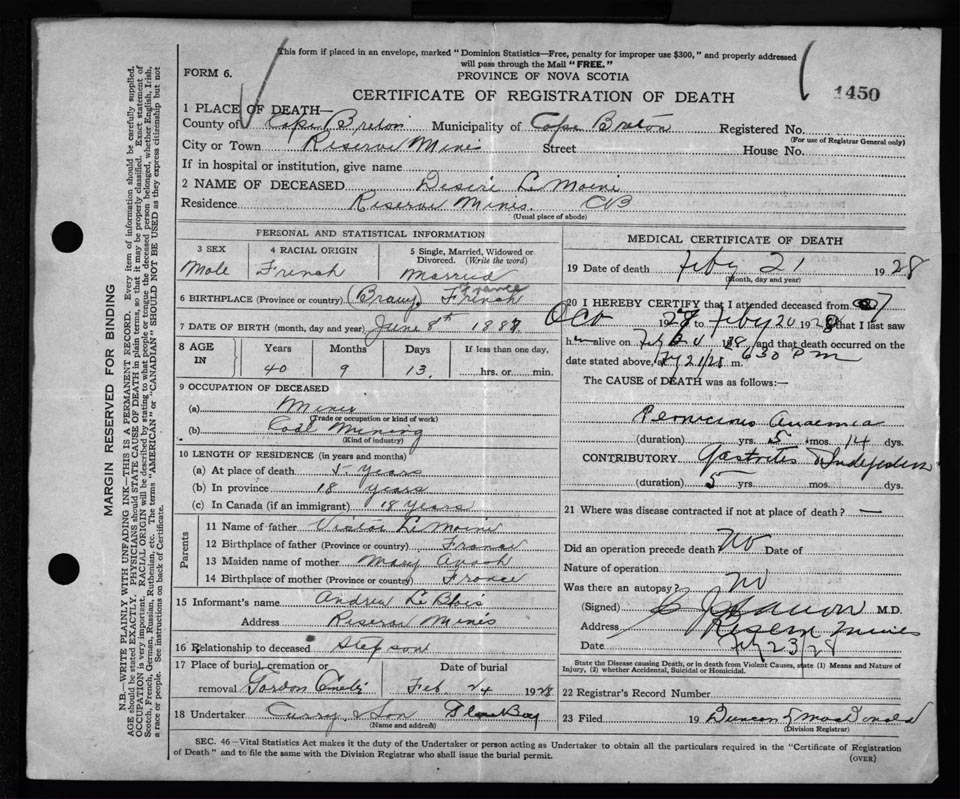 This form if placed in an envelope, marked "Dominion Statistics—Free, penalty for improper use $300," and properly addressed
will pass through the Mail "FREE."
FORM 6.
PROVINCE OF NOVA SCOTIA
CERTIFICATE OF REGISTRATION OF DEATH
1450
1 PLACE OF DEATH—
County of Cape Breton Municipality of Cape Breton Registered No.
(For use of Registrar General only)
City or Town Reserve Mines Street House No.
If in hospital or institution, give name
2 NAME OF DECEASED Desire LeMoine
Residence Reserve Mines. CB
(Usual place of abode)
PERSONAL AND STATISTICAL INFORMATION
3 SEX 4 RACIAL ORIGIN 5 Single, Married, Widowed or
Divorced. (Write the word)
Male French Married
6 BIRTHPLACE (Province or country) French France
7 DATE OF BIRTH (month, day and year) June 8th
8 AGE
IN
Years Months Days If less than one day,
40 9 13. hrs. or min.
9 OCCUPATION OF DECEASED
(a) Miner
(Trade or occupation or kind of work)
(b) Coal Mining
(Kind of industry)
10 LENGTH OF RESIDENCE (in years and months)
(a) At place of death 5 years
(b) In province 18 years
(c) In Canada (if an immigrant) 18 years
Parents
11 Name of father LeMoine
12 Birthplace of father (Province or country) France
13 Maiden name of mother Mary
14 Birthplace of mother (Province or country) France
15 Informant's name Andrew LeBlois
Address Reserve Mines
16 Relationship to deceased Stepson
17 Place of burial, cremation or Date of burial
removal Gordon Feb. 24 1928
18 Undertaker Curry & Son Glace Bay
(Name and address)
MEDICAL CERTIFICATE OF DEATH
19 Date of death Feby 21 1928
(Month, day and year)
20 I HEREBY CERTIFY that I attended deceased from
Oct 1927 to Feby 20 1928 that I last saw
h alive on and that death occurred on the
date stated above, at 6 30 P m m.
The CAUSE of DEATH was as follows:—
Pernicious Anaemia
(duration) yrs. 5 mos. 14 dys.
CONTRIBUTORY Gastritis
(duration) 5 yrs. mos. dys.
21 Where was disease contracted if not at place of death? —
Did an operation precede death No Date of
Nature of operation
Was there an autopsy? No
(Signed) M.D.
Address Mines
Date 23/28
State the Disease causing Death, or in death from Violent Causes, state (1) Means and Nature of
Injury, (2) whether Accidental, Suicidal or Homicidal.
22 Registrar's Record Number
23 Filed 19 Duncan MacDonald
(Division Registrar)
SEC. 46—Vital Statistics Act makes it the duty of the Undertaker or person acting as Undertaker to obtain all the particulars required in the "Certificate of Registration
of Death" and to file the same with the Division Registrar who shall issue the burial permit.
(OVER)
MARGIN RESERVED FOR BINDING
N.B.—WRITE PLAINLY WITH UNFADING INK—THIS IS A PERMANENT RECORD. Every item of information should be carefully supplied.
AGE should be stated EXACTLY. PHYSICIANS should STATE CAUSE OF DEATH in plain terms, so that it may be properly classified. Exact statement of
OCCUPATION is very important. RACIAL ORIGIN will be described by stating to what people or tongue the deceased person belonged, whether English, Irish,
Scotch, French, German, Russian, Ruthenian, etc. The terms "AMERICAN" or "CANADIAN" SHOULD NOT BE USED as they express citizenship but not
a race or people. See instructions on back of Certificate.